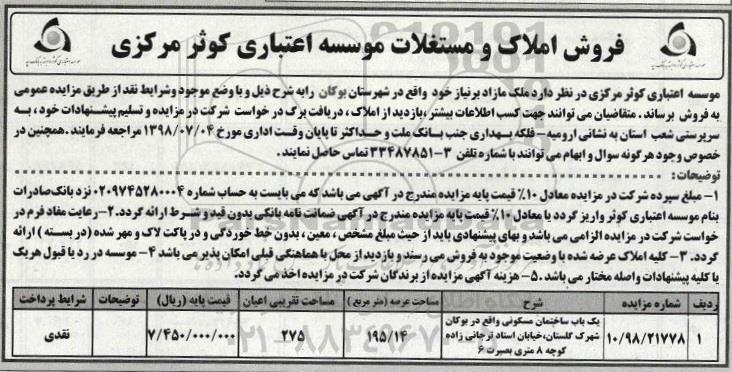 فروش املاک و مستغلات موسسه اعتباری کوثر مرکزی
موسسه اعتباری کوثر مرکزی در نظر دارد ملک مازاد برنیاز خود واقع در شهرستان بوکان رابه شرح ذیل و با وضع موجود وشرایط نقد از طریق مزایده عمومی
به فروش برساند. متقاضیان می توانند جهت کسب اطلاعات بیشتر ،بازدید از املاک ، دریافت برگ درخواست شرکت در مزایده و تسلیم پیشنهادات خود ، به
سرپرستی شعب استان به نشانی ارومیه– فلکه بهداری جنب بانک ملت و حداکثر تا پایان وقت اداری مورخ ۱۳۹۸/۰۷/۰۴ مراجعه فرمایند .همچنین در
خصوص وجود هرگونه سوال و ابهام می توانند با شماره تلفن ۳-۳۳۴۸۷۸۵۱ تماس حاصل نمایند.
توضیحات:
۱- مبلغ سپرده شرکت در مزایده معادل ۱۰٪ قیمت پایه مزایده مندرج در آگهی می باشد که می بایست به حساب شماره ۰۲۰۹۷۴۵۲۸۰۰۰۴ نزد بانک صادرات
بنام موسسه اعتباری کوثر واریز گردد یا معادل ۱۰٪ قیمت پایه مزایده مندرج در آگهی ضمانت نامه بانکی بدون قید و شرط ارائه گردد. ۲- رعایت مفاد فرم در
خواست شرکت در مزایده الزامی می باشد و بهای پیشنهادی باید از حیث مبلغ مشخص ، معین ، بدون خط خوردگی و در پاکت لاک و مهر شده (در بسته ) ارائه
گردد. ۳- کلیه املاک عرضه شده با وضعیت موجود به فروش می رسند و بازدید از محل با هماهنگی قبلی امکان پذیر می باشد ۴- موسسه در رد یا قبول هریک
یا کلیه پیشنهادات واصله مختار می باشد. ۵- هزینه آگهی مزایده از برندگان شرکت در مزایده اخذ می گردد.
ردیف شماره مزایده شرح مساحت عرصه (متر مربع ) مساحت تقریبی اعیان قیمت پایه (ریال) توضیحات شرایط پرداخت
۱ ۱۰/۹۸/۲۱۷۷۸ یک باب ساختمان مسکونی واقع در بوکان ۱۹۵/۱۴ ۲۷۵ ۷/۴۵۰/۰۰۰/۰۰۰ نقدی
شهرک گلستان،خیابان استاد ترجانی زاده
کوچه ۸ متری بصیرت ۶